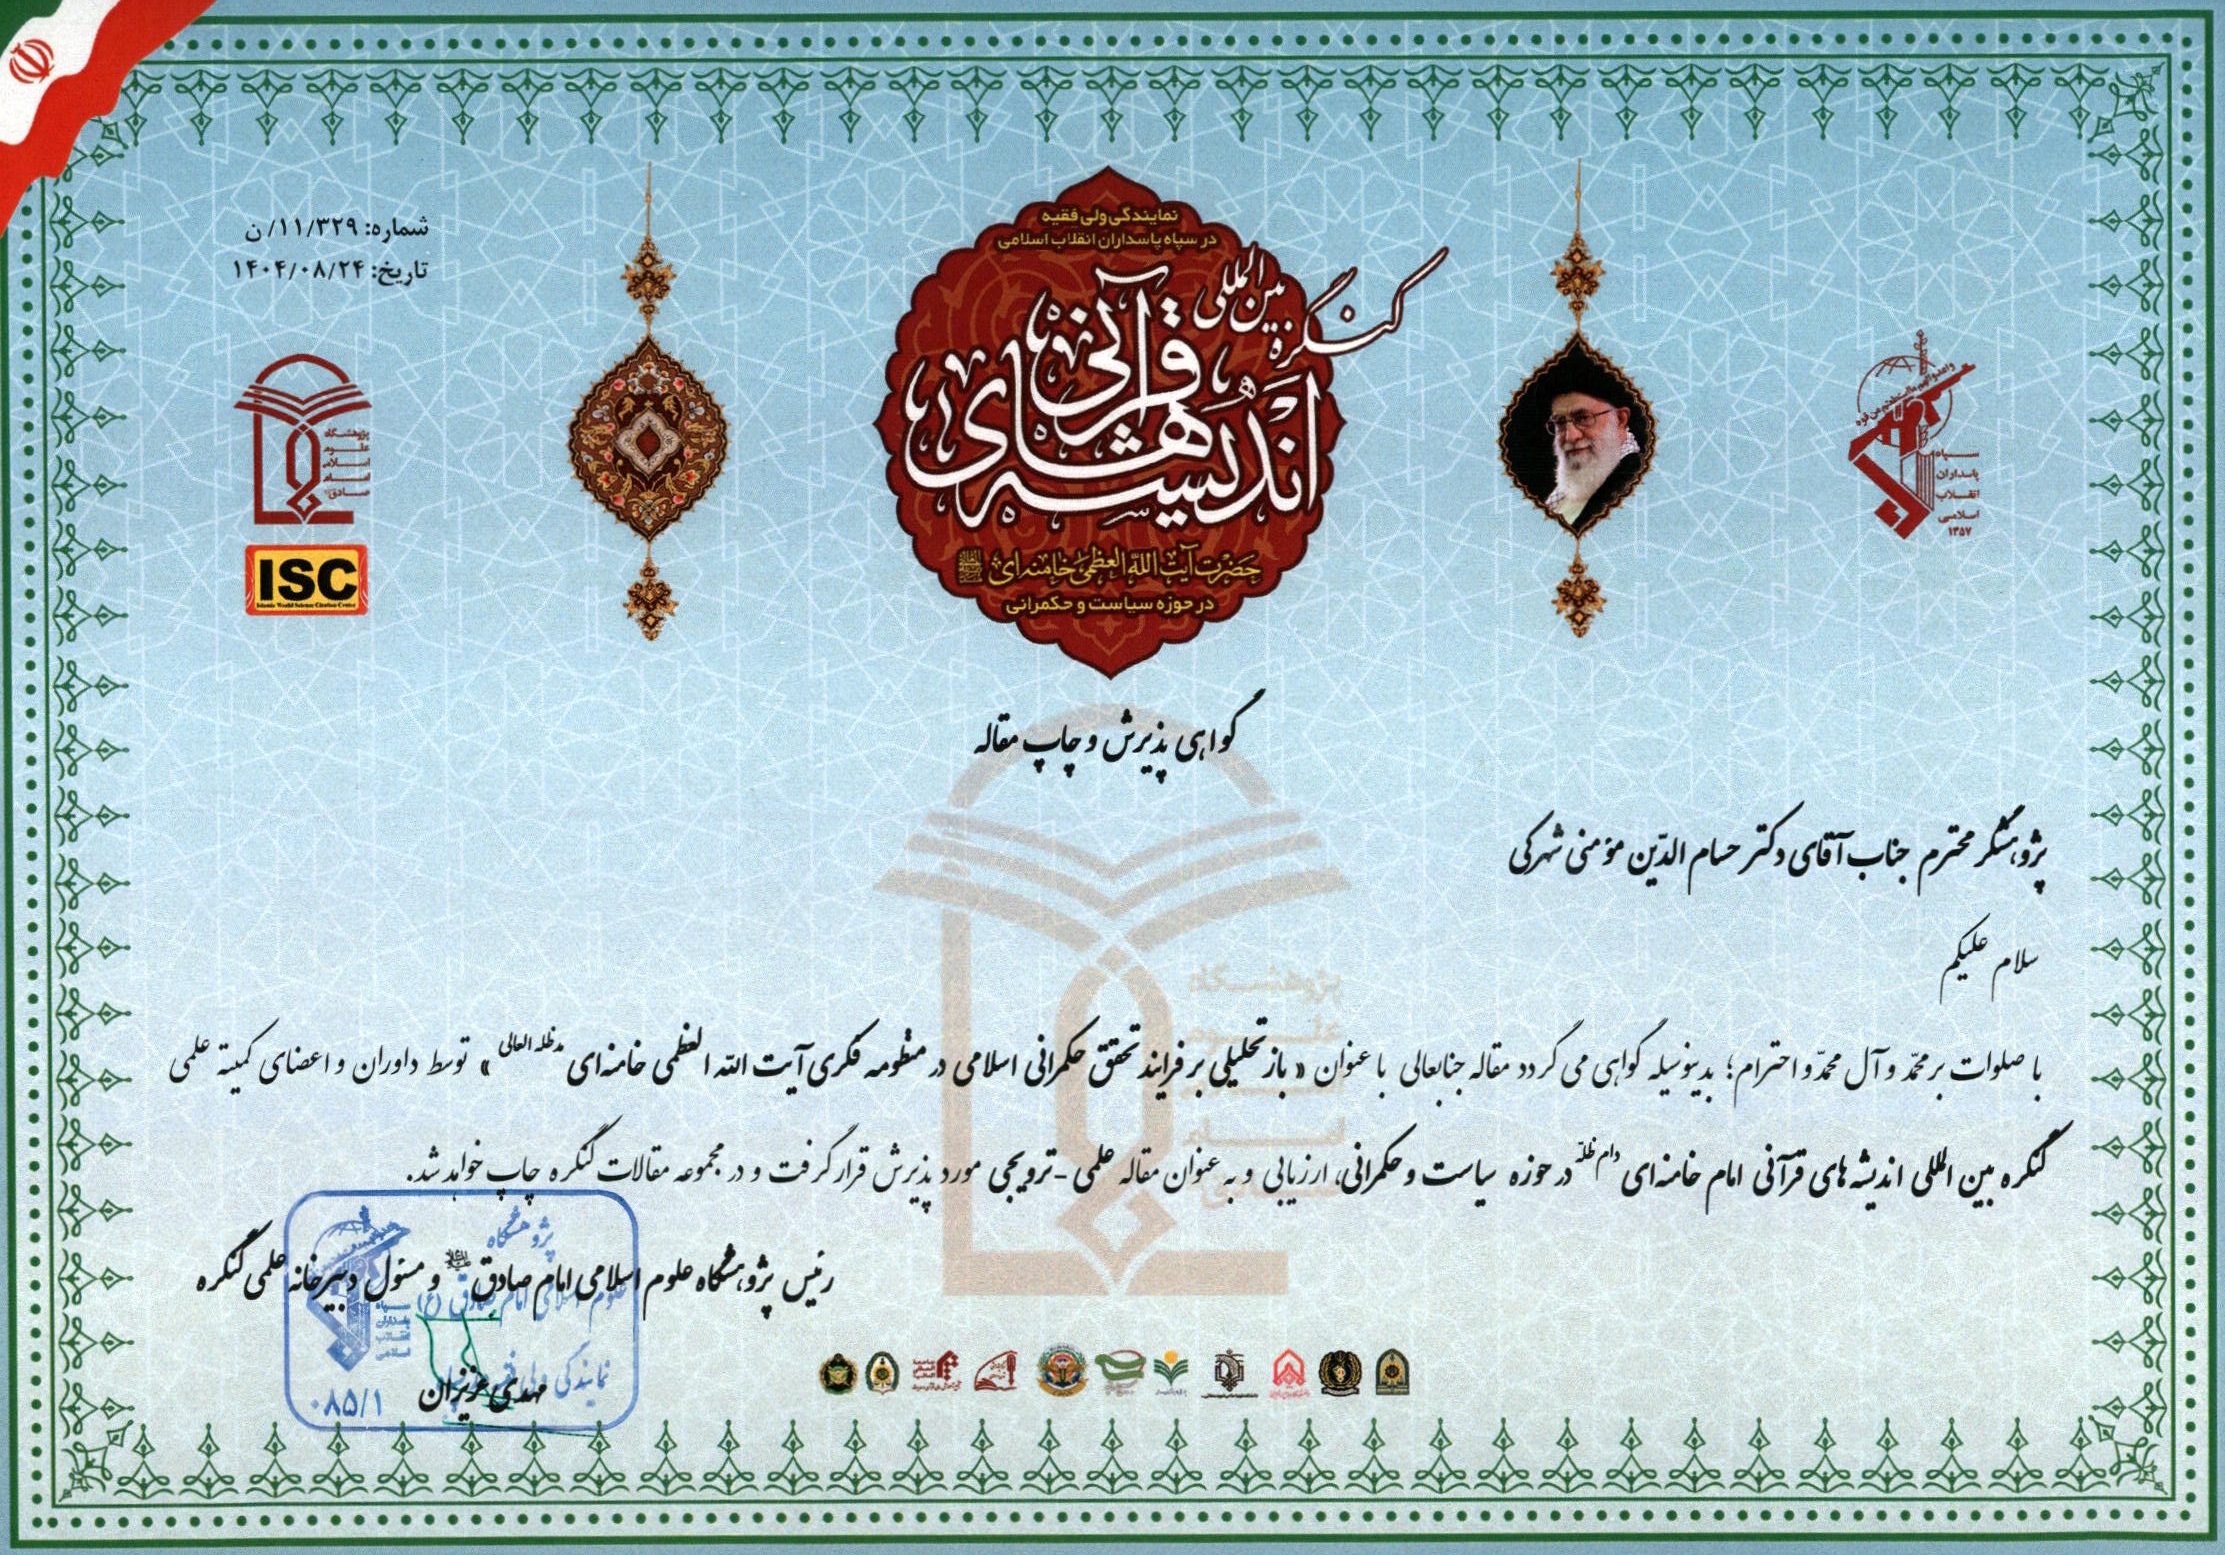 شماره: ۱۱/۳۲۹/ن
تاریخ: ۱۴۰۴/۰۸/۲۴
نمایندگی ولی فقیه
در سپاه پاسداران انقلاب اسلامی
کنگره بین المللی
اندیشه های قرآنی
حضرت آیت الله العظمی خامنه ای
در حوزه سیاست و حکمرانی
سپاه
پاسداران
انقلاب
اسلامی
۱۳۵۷
پژوهشگاه
علوم
اسلامی
امام
صادق
ISC
Islamic World Science Citation Center
گواهی پذیرش و چاپ مقاله
پژوهشگر محترم جناب آقای دکتر حسام الدّین مؤمنی شهرکی
سلام علیکم
با صلوات بر محمّد و آل محمّد و احترام؛ بدینوسیله گواهی می گردد مقاله جنابعالی با عنوان «بازتحلیلی بر فرایند تحقق حکمرانی اسلامی در منظومه فکری آیت الله العظمی خامنه ای مدظله العالی» توسط داوران و اعضای کمیته علمی
کنگره بین المللی اندیشه های قرآنی امام خامنه ای دام ظلّه در حوزه سیاست و حکمرانی، ارزیابی و به عنوان مقاله علمی - ترویجی مورد پذیرش قرار گرفت و در مجموعه مقالات کنگره چاپ خواهد شد.
رئیس پژوهشگاه علوم اسلامی امام صادق و مسئول دبیرخانه علمی کنگره
مهدی عزیزان
پژوهشگاه
علوم اسلامی امام صادق (ع)
نمایندگی ولی فقیه
۰۸۵/۱